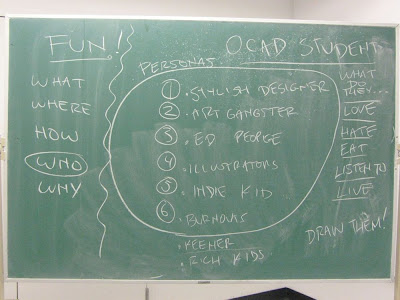 FUN!
WHAT
WHERE
HOW
WHO
WHY
OCAD STUDENT
PERSONAS
1 . STYLISH DESIGNER
2 . ART GANGSTER
3 . ED PEOPLE
4 . ILLUSTRATORS
5 . INDIE KID
6 . BURNOUTS
. KEENER
. RICH KIDS
WHAT
DO
THEY...
LOVE
HATE
EAT
LISTEN TO
LIVE
DRAW THEM!